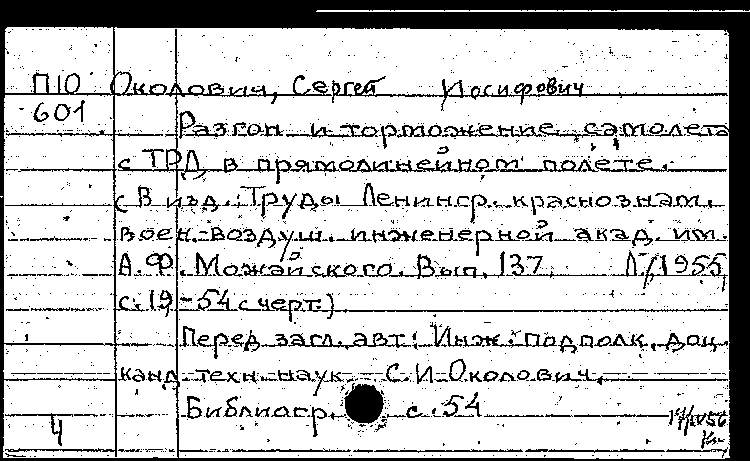 П10 Околович, Сергей Иосифович
601
Разгон и торможение самолета
с ТРД в прямолинейном полете.
(В изд.: Труды Ленингр. краснознам.
воен.-воздуш. инженерной акад. им.
А.Ф. Можайского. Вып. 137. Л., 1955,
с. 19-54 с черт.)
Перед загл. авт: Инж.-подполк, доц.
канд. техн. наук С.И. Околович.
Библиогр. с. 54
4